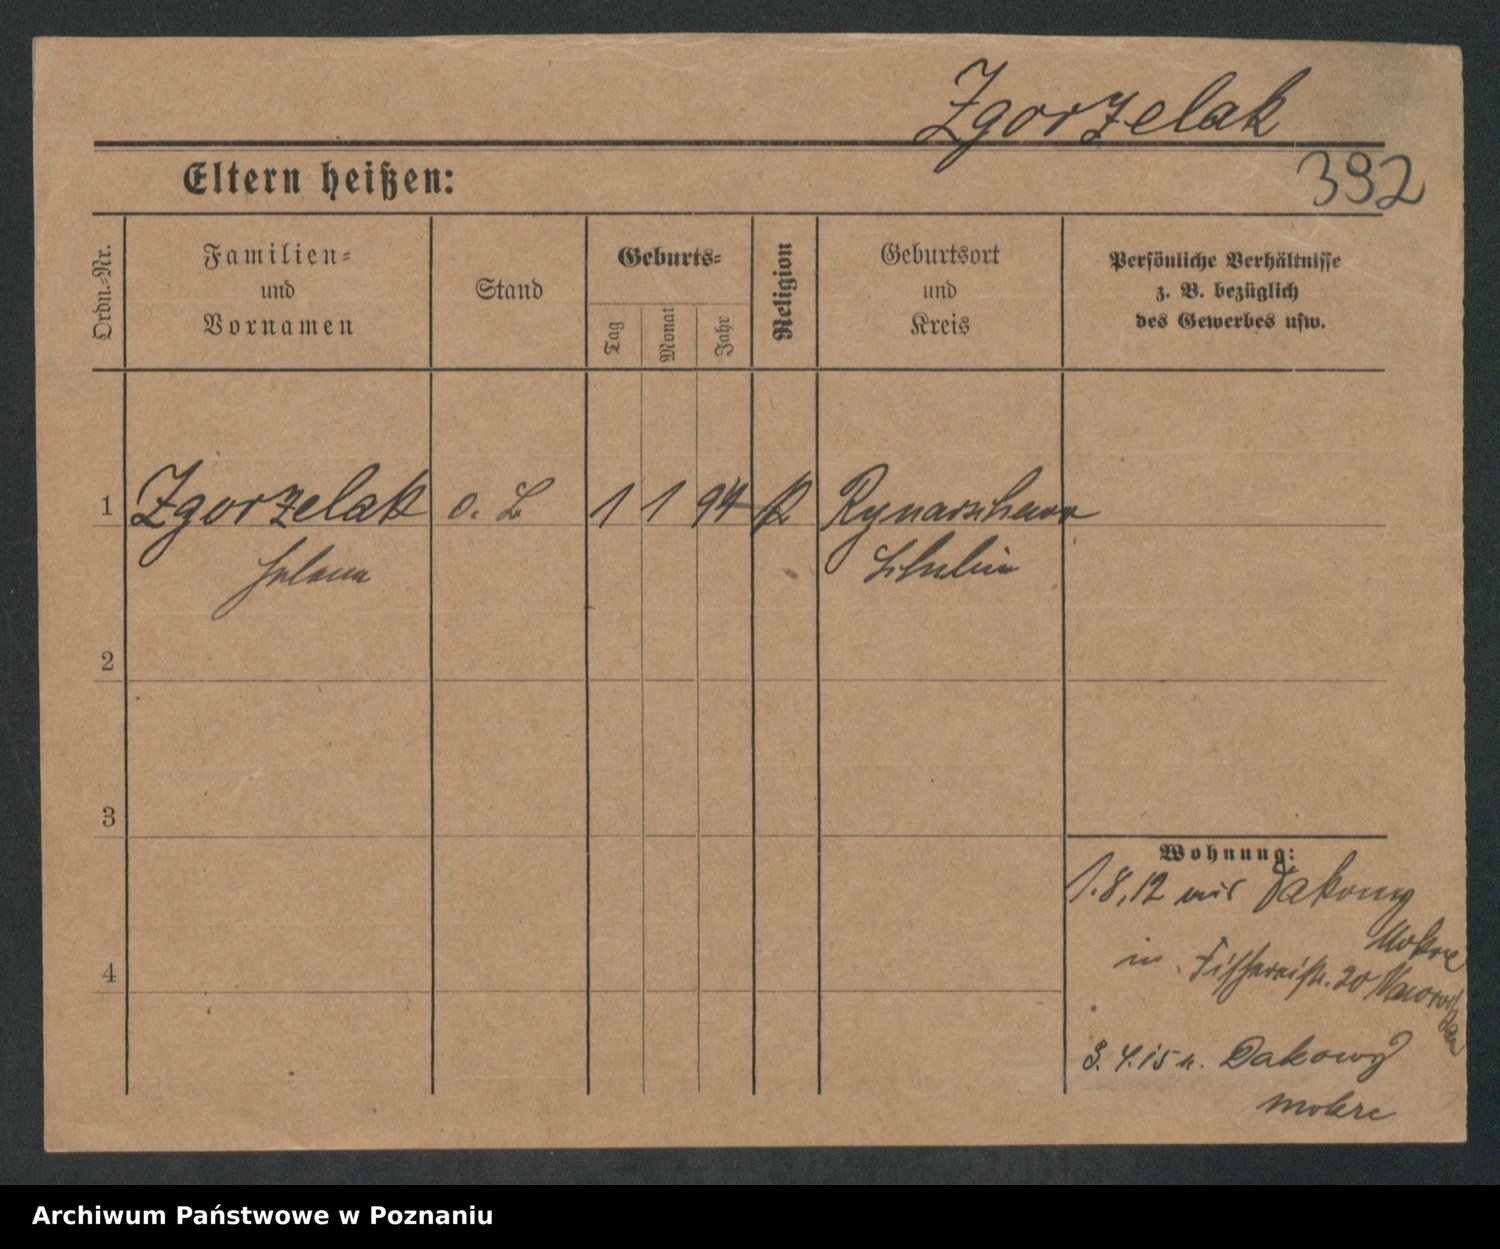 Zgorzelak
392
Eltern heißen:
Ordn.-Nr.
Familien-
und
Vornamen
Stand
Geburts-
Tag
Monat
Jahr
Religion
Geburtsort
und
Kreis
Persönliche Verhältnisse
z. B. bezüglich
des Gewerbes usw.
1 Zgorzelak o. B 1 1 94 K
Helena Schubin
2
3
4
Wohnung:
1.8.12 aus Dakowy
Mokre
in Fischereistr. 20
3.4.15 n. Dakowy
mokre
Archiwum Państwowe w Poznaniu